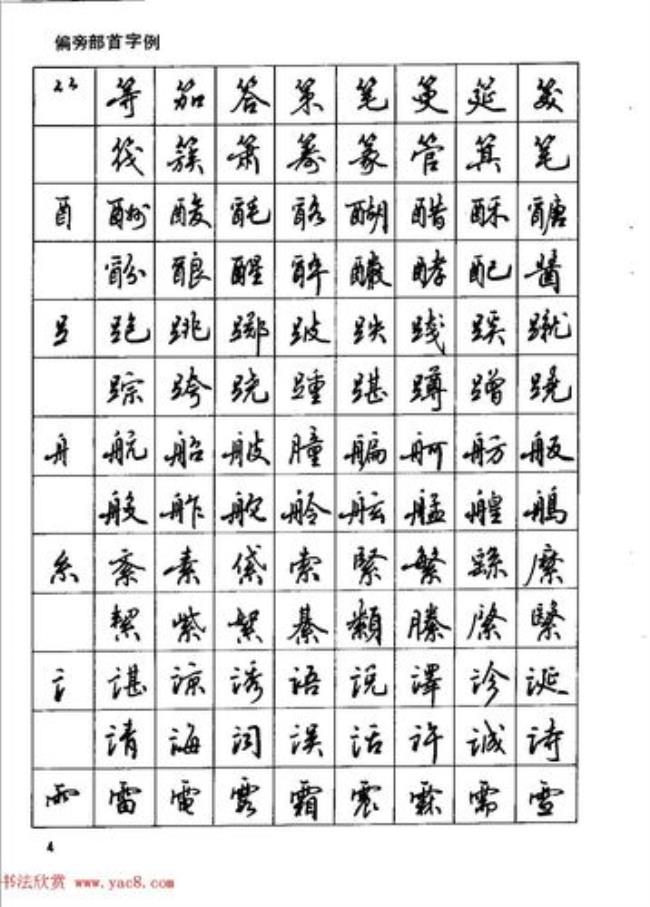 偏旁部首字例
⺮ 等 笳 答 策 笔 筵
筏 簇 萧 篆 管 箕 笔
酉 酬 酸 酕 酪 醐 醋 酥 醣
酚 酿 醒 醉 酵 配 酱
𧾷 跑 跳 踯 跛 跌 践 蹼 蹴
踪 跨 跣 踵 蹲 蹭 跷
舟 航 船 艟 艑 舸 舫 舨
艘 舴 舵 舲 舷 艋 艎
糸 紊 素 袋 索 紧 繁 縻
絜 紫 絮 綦 颣 縢 繄
讠 谌 谅 诱 语 说 译 诊 诞
请 诲 词 误 话 许 诚 诗
雨 雷 電 露 霜 震 霖 需 雪
4
书法欣赏 www.yac8.com